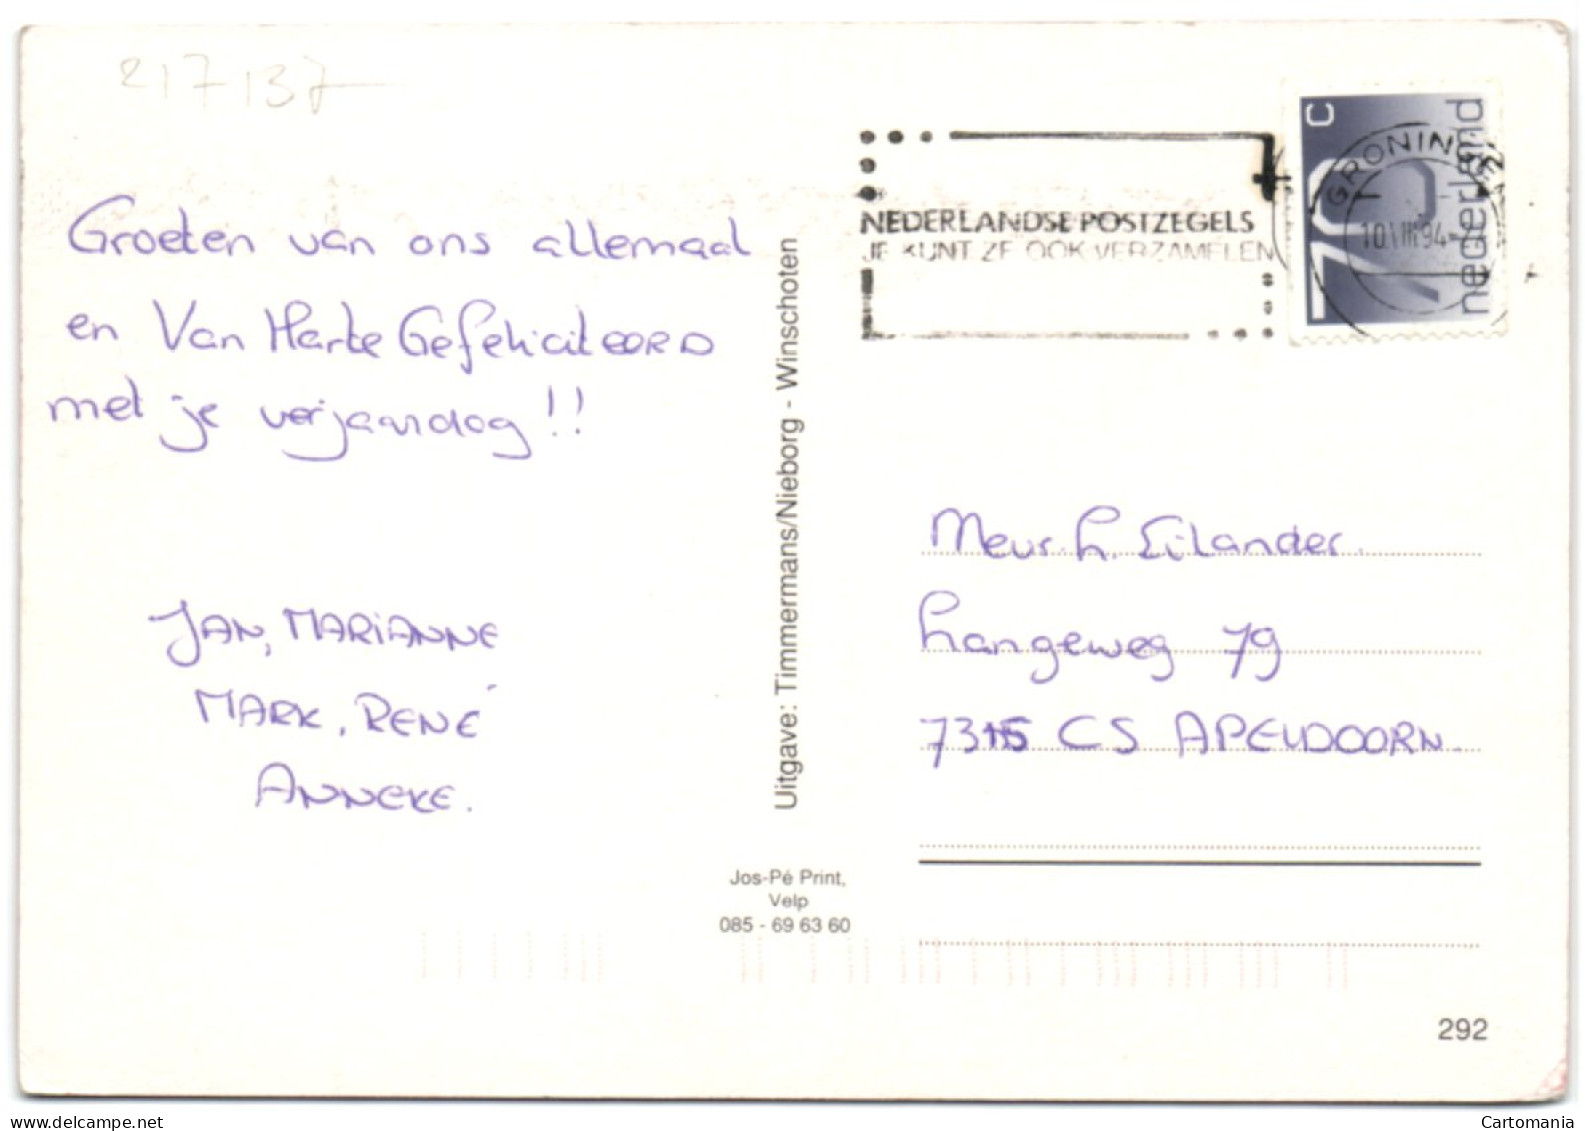 217137
Groeten van ons allemaal
en Van Harte Gefeliciteerd
met je verjaardag!!
JAN, MARIANNE
MARK, RENÉ
ANNEKE.
Uitgave: Timmermans/Nieborg - Winschoten
Jos-Pé Print,
Velp
085 - 69 63 60
NEDERLANDSE POSTZEGELS
JE KUNT ZE OOK VERZAMELEN
GRONINGEN
10 VIII 94
70 C
nederland
Mevr. h. Eilander.
Langeweg 79
7315 CS APELDOORN.
292
delcampe.net
Cartomania